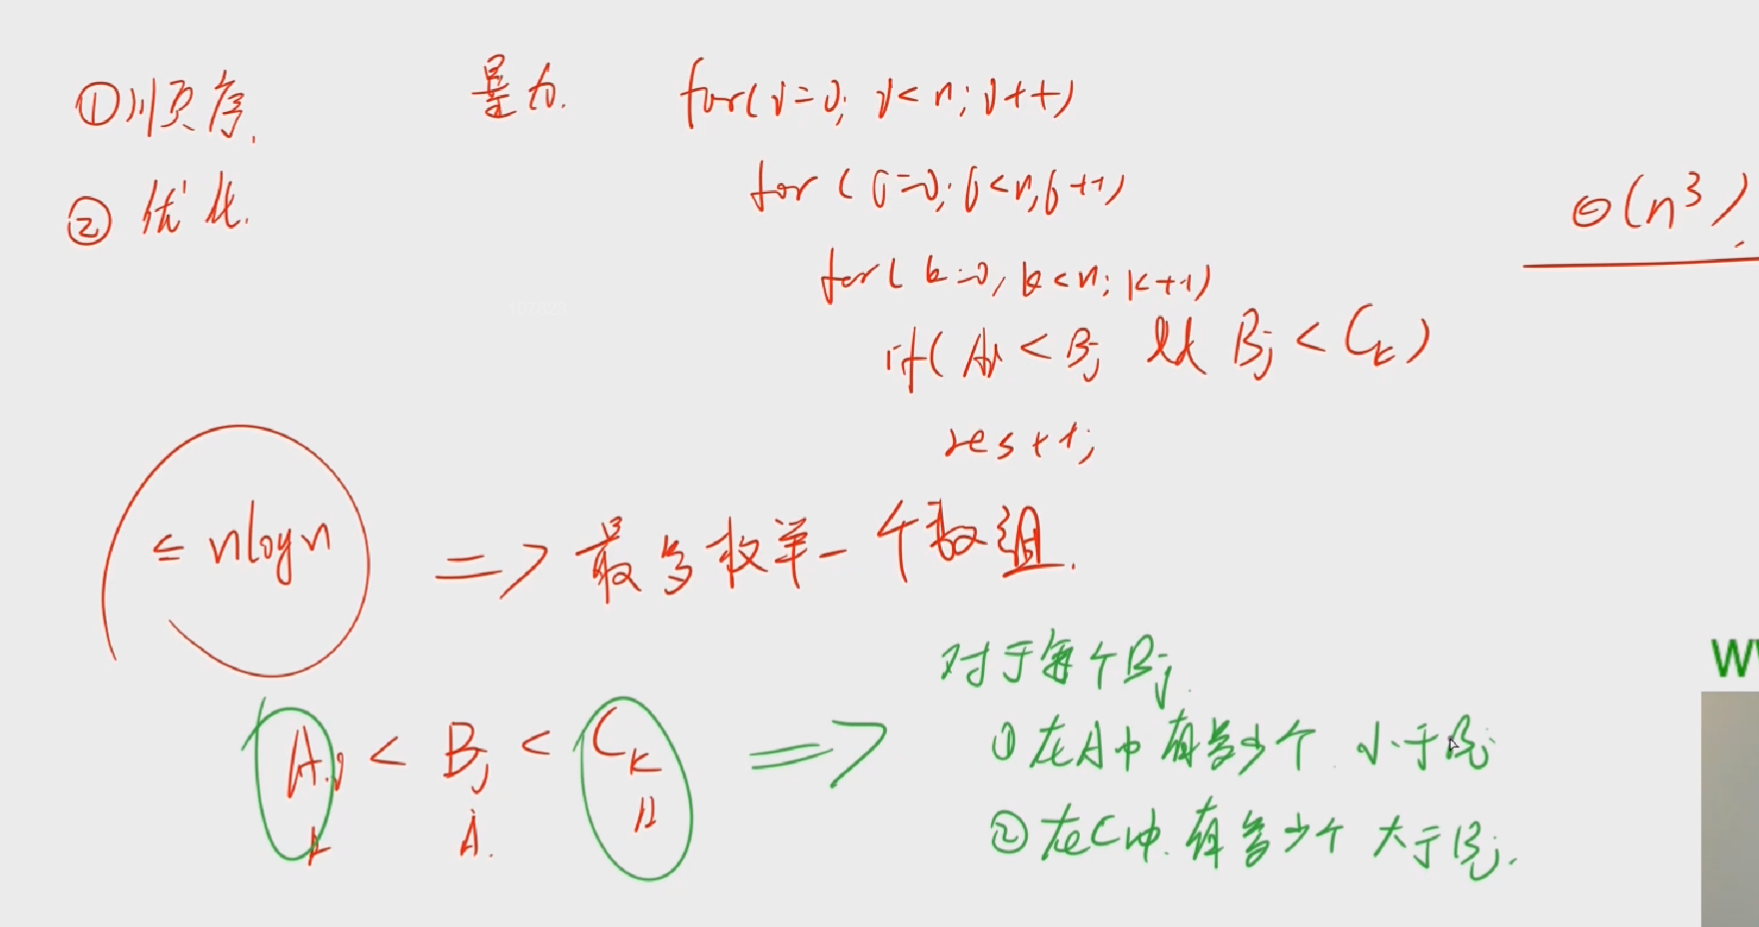 ①顺序.
②优化.
暴力.
for(i=0; i<n; i++)
for(j=0; j<n; j++)
for(k=0; k<n; k++)
if(Ai < Bj && Bj < Ck)
res++;
O(n³).
≤ nlogn => 最多枚举一个数组.
Ai < Bj < Ck =>
对于每个Bj.
① 在A中有多少个小于Bj
② 在C中有多少个大于Bj.
W